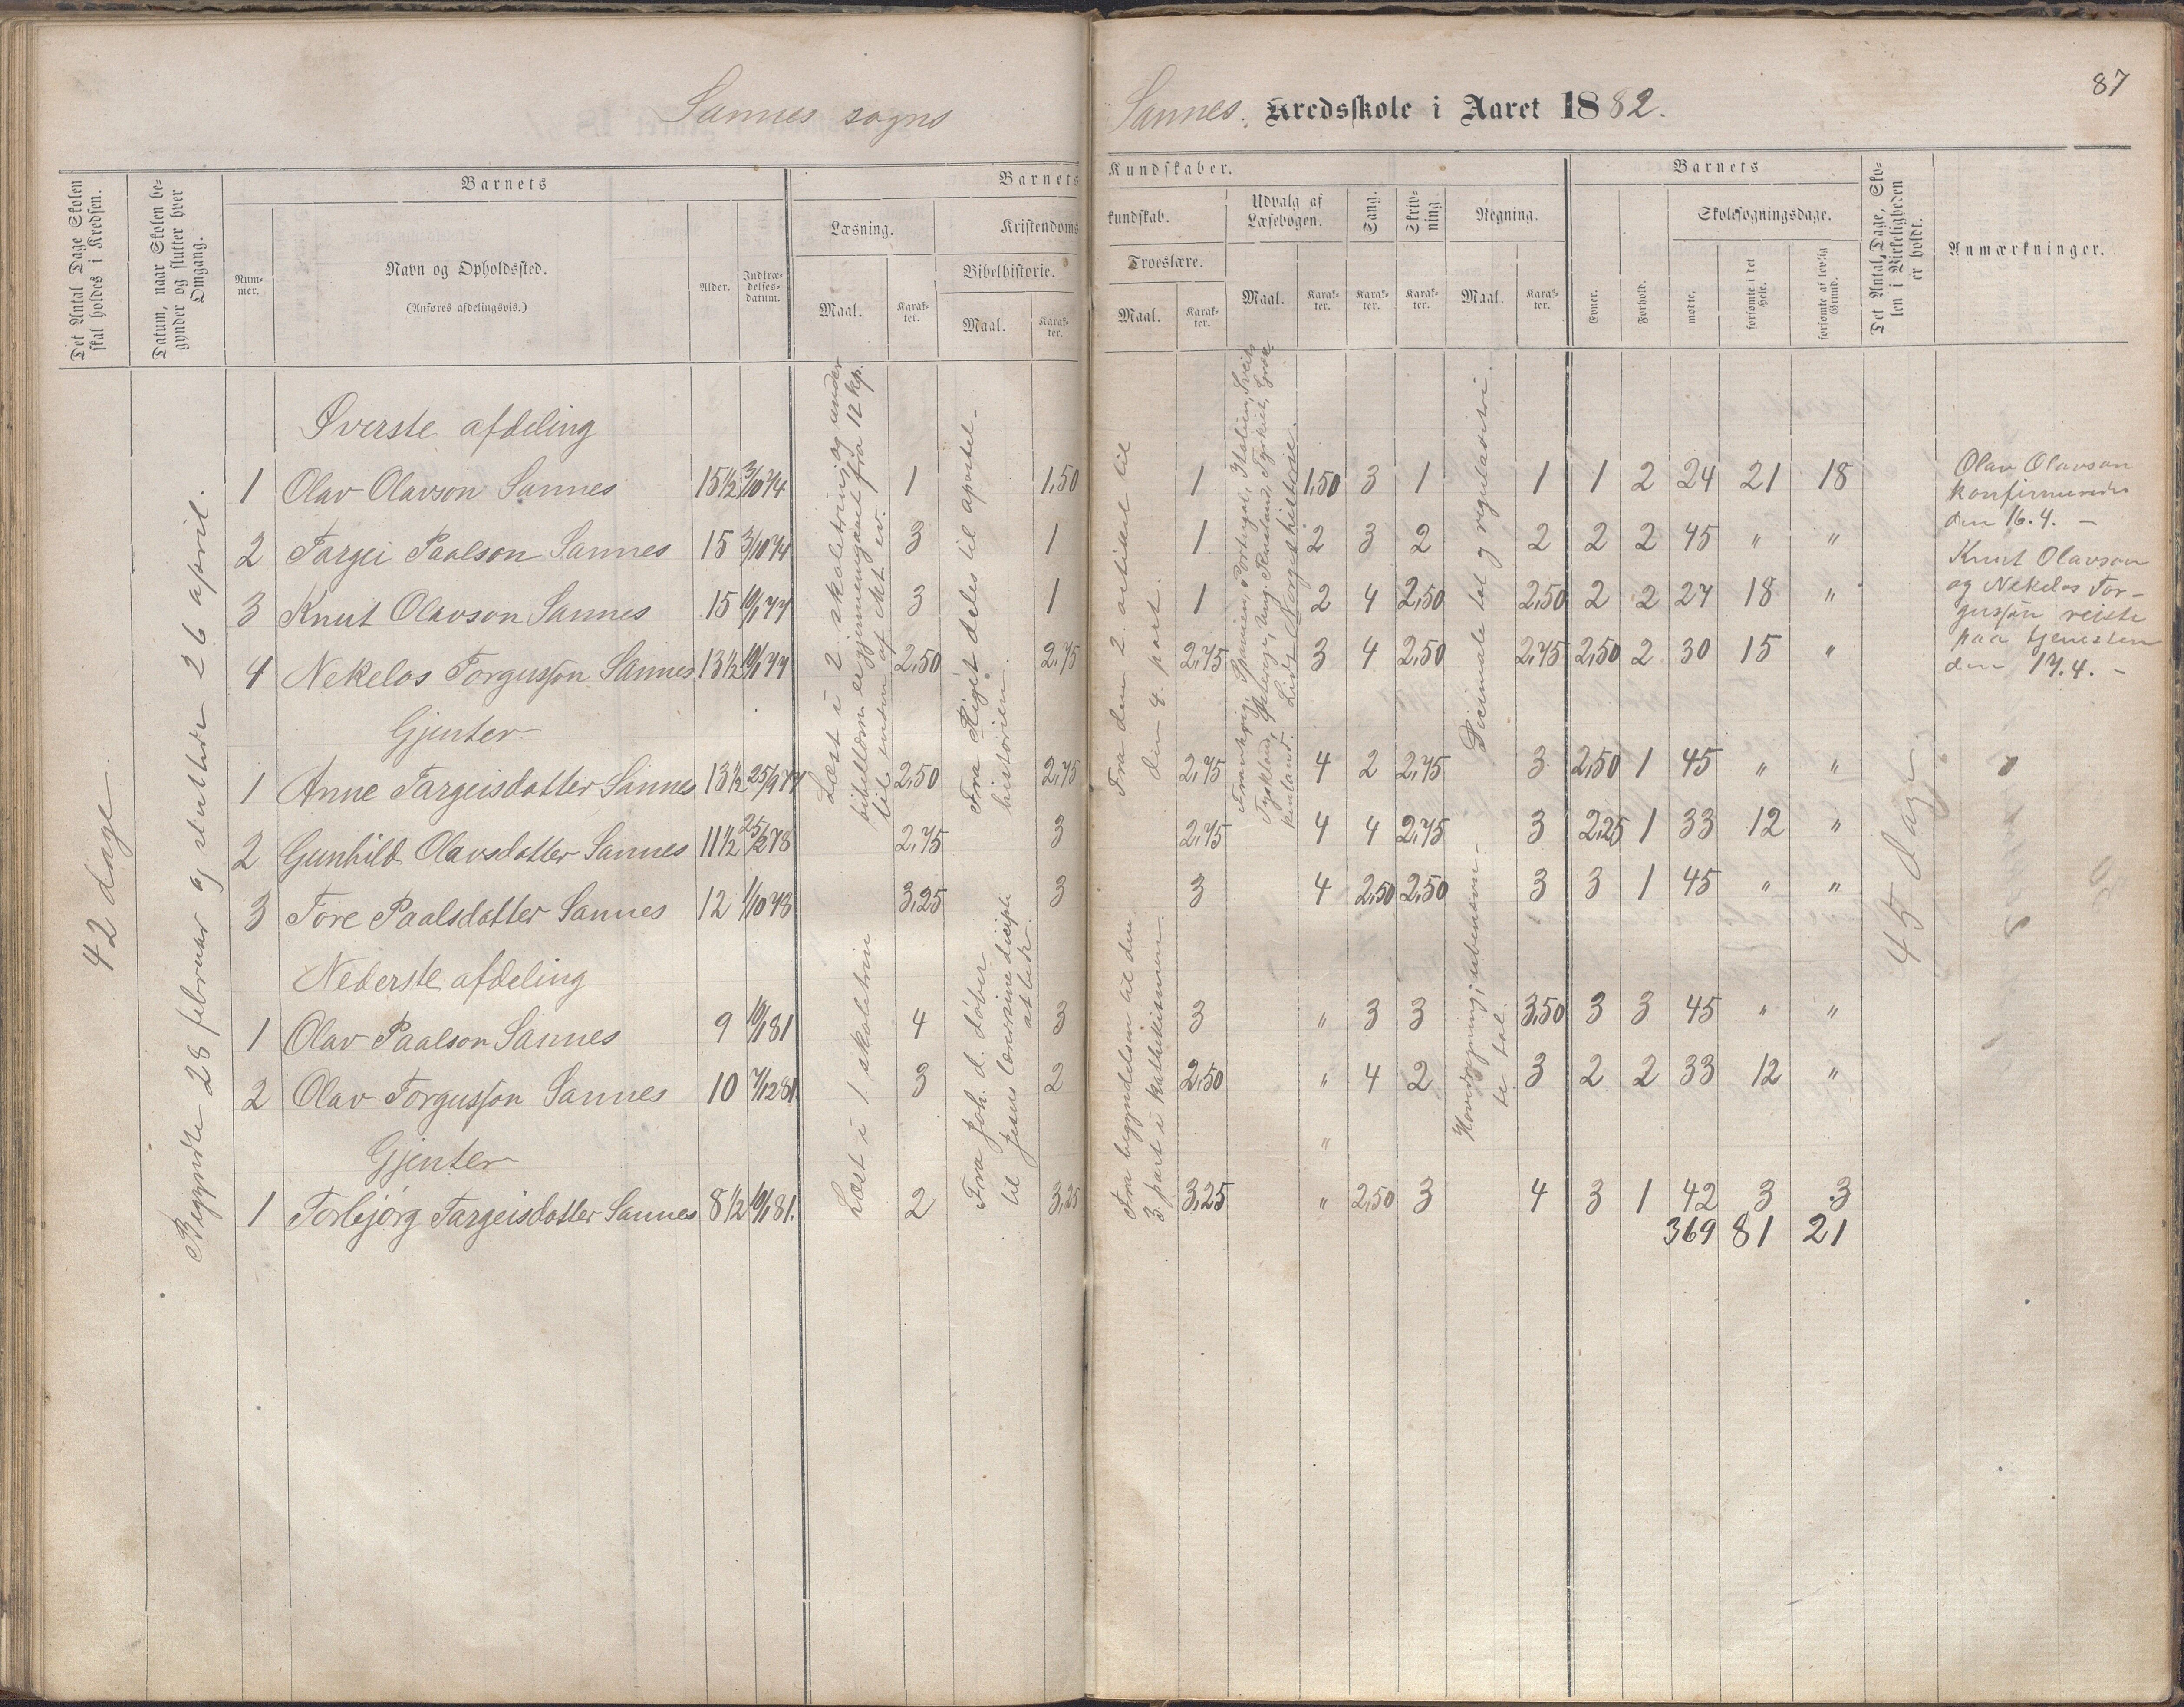 87
Sannes sogns
Sannes Kredsskole i Aaret 1882.
Det Antal Dage Skolen
skal holdes i Kredsen.
Datum, naar Skolen be-
gynder og slutter hver
Omgang.
Barnets
Num-
mer.
Navn og Opholdssted.
(Anføres afdelingsvis.)
Alder.
Indtræ-
delses-
datum.
Barnets
Læsning.
Maal.
Karak-
ter.
Kristendoms
Bibelhistorie.
Maal.
Karak-
ter.
Kundskaber.
kundskab.
Troeslære.
Maal.
Karak-
ter.
Udvalg af
Læsebogen.
Maal.
Karak-
ter.
Sang.
Karak-
ter.
Skriv-
ning
Karak-
ter.
Regning.
Maal.
Karak-
ter.
Barnets
Evner.
Forhold.
Skolesøgningsdage.
mødte.
forsømte i det
Hele.
forsømte af lovlig
Grund.
Det Antal Dage, Sko-
len i Virkeligheden
er holdt.
Anmærkninger.
42 dage.
Begyndte 28 februar og sluttede 26 april.
Øverste afdeling
1 Olav Olavson Sannes 15½ 3/10 74 1 1,50 1 1,50 3 1 1 1 2 24 21 18
2 Targei Paalson Sannes 15 3/10 74 3 1 1 2 3 2 2 2 2 45 " "
3 Knut Olavson Sannes 15 10/1 77 3 1 1 2 4 2,50 2,50 2 2 27 18 "
4 Nekelos Torgusson Sannes 13½ 10/1 77 2,50 2,75 2,75 3 4 2,50 2,75 2,50 2 30 15 "
Gjenter
1 Anne Targeisdatter Sannes 13½ 25/9 77 2,50 2,75 2,75 4 2 2,75 3 2,50 1 45 " "
2 Gunhild Olavsdatter Sannes 11½ 25/2 78 2,75 3 2,75 4 4 2,75 3 2,25 1 33 12 "
3 Tore Paalsdatter Sannes 12 1/10 78 3,25 3 3 4 2,50 2,50 3 3 1 45 " "
Nederste afdeling
1 Olav Paalson Sannes 9 10/1 81 4 3 3 " 3 3 3,50 3 3 45 " "
2 Olav Torgusson Sannes 10 7/12 81 3 2 2,50 " 4 2 3 2 2 33 12 "
Gjenter "
1 Torbjørg Targeisdatter Sannes 8½ 10/1 81. 2 3,25 3,25 " 2,50 3 4 3 1 42 3 3
369 81 21
Læst i 2. skoletrin og under
bibellæsn. er gjennemgaaet fra 12 kp.
til enden af Mt. ev.
Fra Rigets deles til apostel-
historien.
Fra den 2. artikel til
den 4. part.
Frankrig, Spanien, Portugal, Italien, Sveits
Tyskland, Østerrig, Ung. Rusland, Tyrkiet, Græ-
kenland. Lidt Norges historie.
Decimale tal og regulatetri.
Læst i 1 skoletrin
Fra Joh. d. døber
til Jesus lærer sine disiple
at bede
Fra begyndelsen til den
3. part i kathekismen.
Hovedregning i ubenævn-
te tal.
45 dage
Olav Olavson
konfirmeredes
den 16.4. —
Knut Olavson
og Nekelos Tor-
gusson reiste
paa tjenesten
den 17.4. —